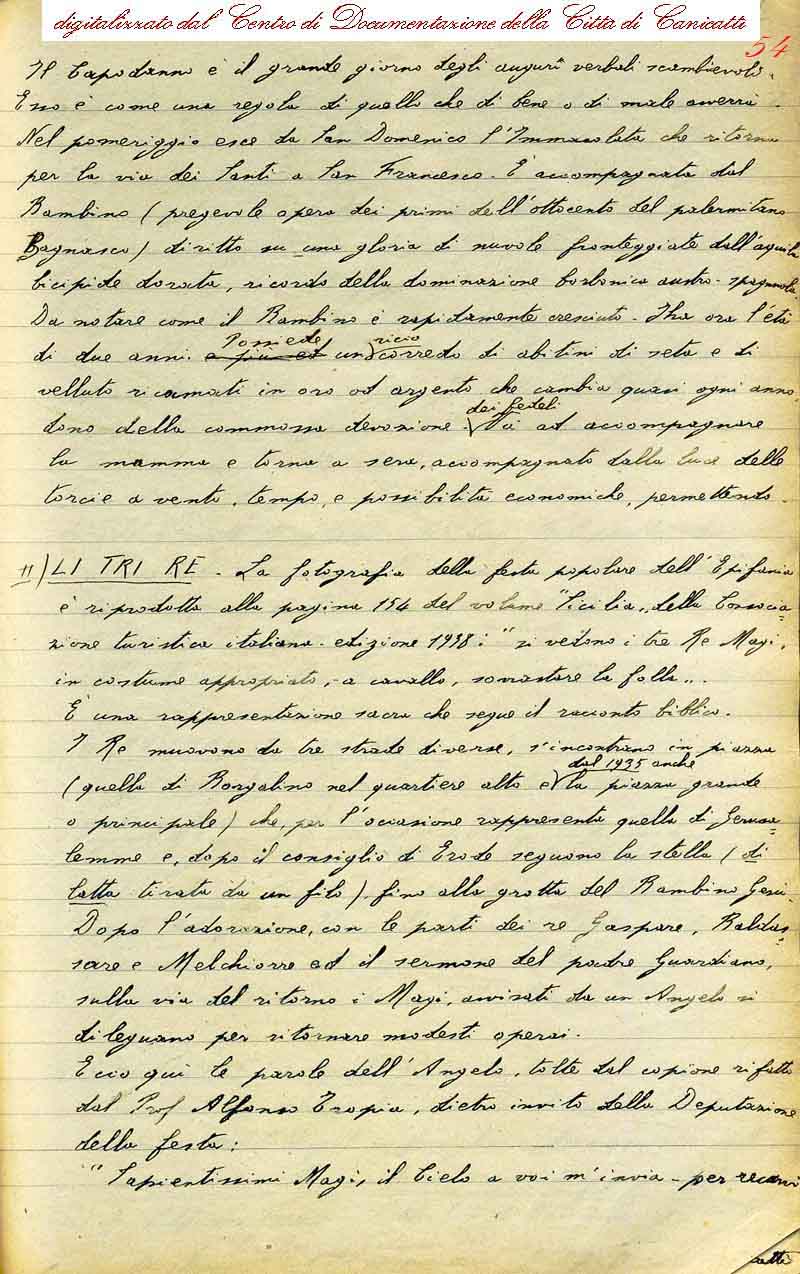 digitalizzato dal Centro di Documentazione della Città di Canicattì
54
Il Capodanno è il grande giorno degli augurî verbali scambievoli.
Esso è come una regola di quello che di bene o di male avverrà.
Nel pomeriggio esce da San Domenico l'Immacolata che ritorna
per la via dei Santi a San Francesco. È accompagnata dal
Bambino (pregevole opera dei primi dell'ottocento del palermitano
Bagnasco) diritto su una gloria di nuvole fronteggiate dall'aquila
bicipide dorata, ricordo della dominazione borbonica austro-spagnola.
Da notare come il Bambino è rapidamente cresciuto. Ha ora l'età
di due anni. Possiede un ricco corredo di abitini di seta e di
velluto ricamati in oro ed argento che cambia quasi ogni anno,
dono della commossa devozione dei fedeli. Va ad accompagnare
la mamma e torna a sera, accompagnato dalla luce delle
torcie a vento, tempo, e possibilità economiche, permettendo.
11) LI TRI RE - La fotografia della festa popolare dell'Epifania
è riprodotta alla pagina 154 del volume "Sicilia,, della Consocia=
zione turistica italiana - edizione 1938: " si vedono i tre Re Magi,
in costume appropriato, a cavallo, sovrastare la folla,,.
È una rappresentazione sacra che segue il racconto biblico.
I Re muovono da tre strade diverse, s'incontrano in piazza
(quella di Borgalino nel quartiere alto e dal 1935 anche la piazza grande
o principale) che, per l'occasione rappresenta quella di Gerusa=
lemme e, dopo il consiglio di Erode seguono la stella (di
latta tirata da un filo) fino alla grotta del Bambino Gesù.
Dopo l'adorazione, con le parti dei re Gaspare, Baldas=
sare e Melchiorre ed il sermone del padre Guardiano,
sulla via del ritorno i Magi, avvisati da un Angelo si
dileguano per ritornare modesti operai.
Ecco qui le parole dell'Angelo, tolte dal copione rifatto
dal Prof Alfonso Tropia, dietro invito della Deputazione
della festa:
" Sapientissimi Magi, il Cielo a voi m'invia - per recarvi